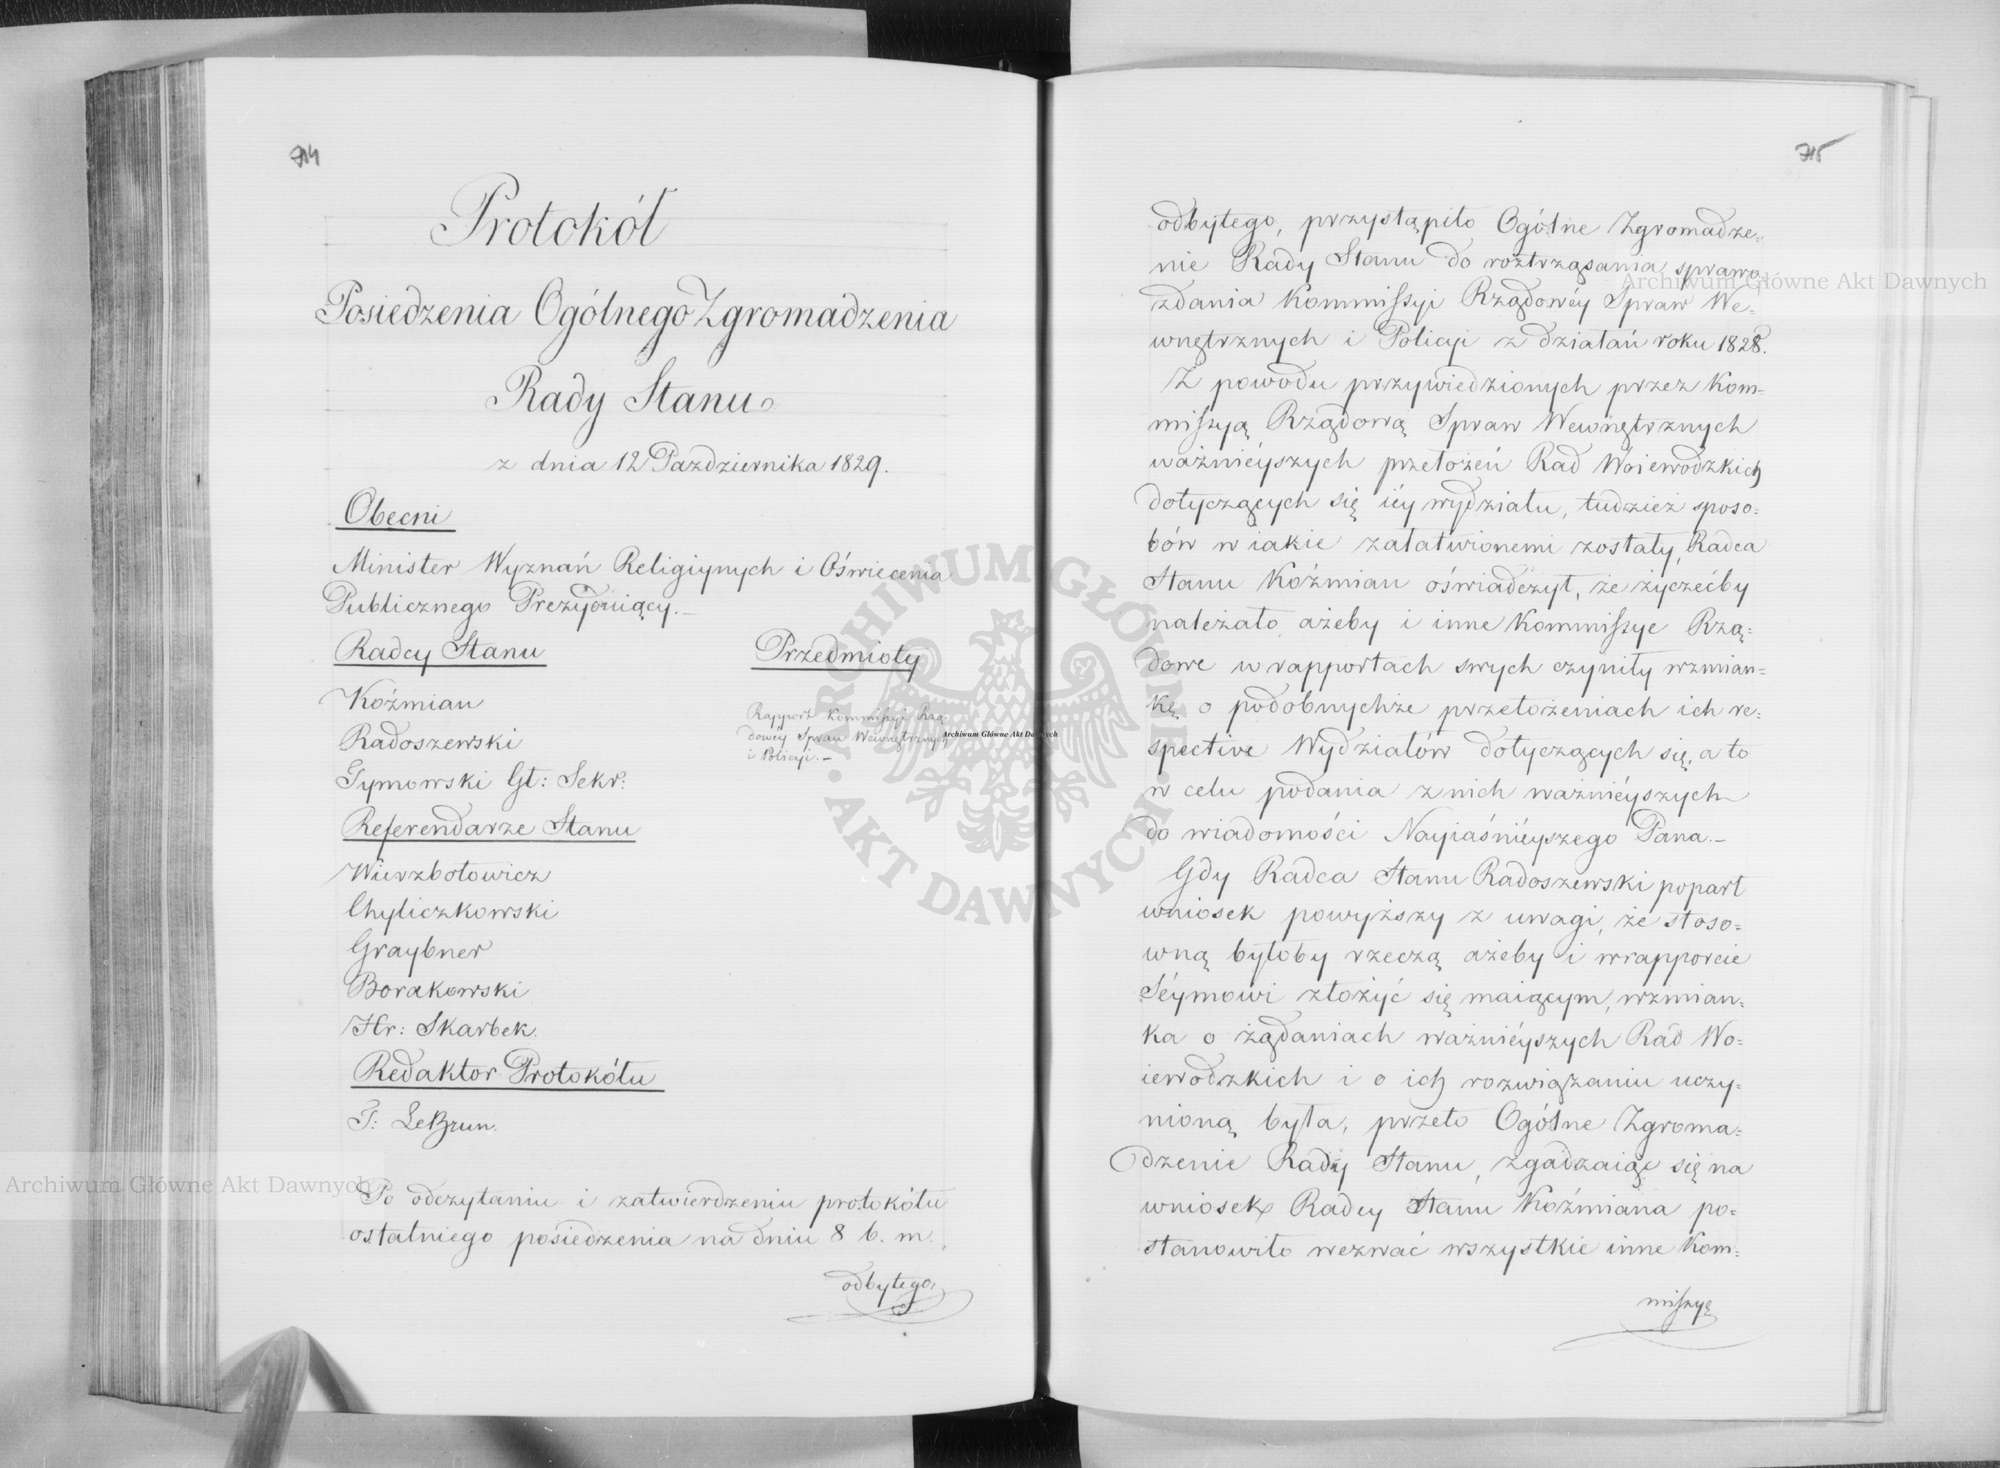 714
Protokół
Posiedzenia Ogólnego Zgromadzenia
Rady Stanu
z dnia 12 Października 1829.
Obecni
Minister Wyznań Religiynych i Oświecenia
Publicznego Prezyduiący.—
Radcy Stanu
Koźmian
Radoszewski
Tymowski Gł: Sekr:
Referendarze Stanu
Wierzbołowicz
Chyliczkowski
Graybner
Borakowski
Hr: Skarbek.
Redaktor Protokółu
T: LeBrun.
Przedmioty
Rapport Kommissyi Rzą-
dowéy Spraw Wewnętrznych
i Policyi.—
Po odczytaniu i zatwierdzeniu protokółu
ostatniego posiedzenia na dniu 8 b. m.
odbytego,
715
odbytego, przystąpiło Ogólne Zgromadze=
nie Rady Stanu do roztrząsania sprawo=
zdania Kommissyi Rządowéy Spraw We=
wnętrznych i Policyi z działań roku 1828.
Z powodu przywiedzionych przez Kom=
missyą Rządową Spraw Wewnętrznych
ważnieyszych przełożeń Rad Woiewodzkich
dotyczących się iéy wydziału, tudzież sposo=
bów w iakie załatwionemi zostały, Radca
Stanu Koźmian oświadczył, że życzećby
należało ażeby i inne Kommissye Rzą=
dowe w rapportach swych czyniły wzmian=
kę o podobnychże przełożeniach ich re=
spective Wydziałów dotyczących się, a to
w celu podania z nich ważniéyszych
do wiadomości Nayiaśniéyszego Pana.—
Gdy Radca Stanu Radoszewski poparł
wniosek powyższy z uwagi, że stoso=
wną byłoby rzeczą ażeby i w rapporcie
Séymowi złożyć się maiącym, wzmian=
ka o żądaniach ważniéyszych Rad Wo=
iewodzkich i o ich rozwiązaniu uczy=
nioną była, przeto Ogólne Zgroma=
dzenie Rady Stanu, zgadzaiąc się na
wniosek Radcy Stanu Koźmiana po=
stanowiło wezwać wszystkie inne Kom=
missyę
Archiwum Główne Akt Dawnych
Archiwum Główne Akt Dawnych
Archiwum Główne Akt Dawnych
ARCHIWUM GŁÓWNE
AKT DAWNYCH